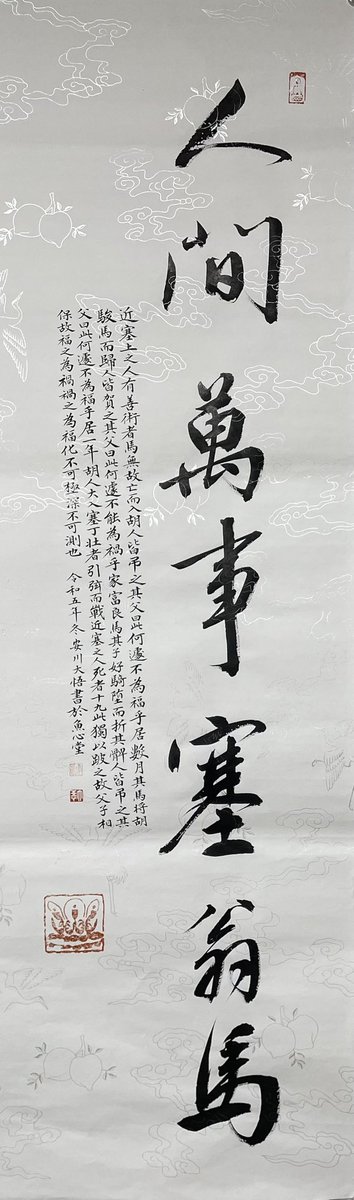 人間萬事塞翁馬
近塞上之人有善術者馬無故亡而入胡人皆吊之其父曰此何遽不為福乎居數月其馬將胡
駿馬而歸皆賀之其父曰此何遽不能為禍乎家富良馬其子好騎墮而折其髀人皆吊之其
父曰此何遽不為福乎居一年胡人大入塞丁壯者引弦而戰近塞之人死者十九此獨以跛之故父子相
保故福之為禍禍之為福化不可極深不可測也 令和五年冬安川大悟書於魚心堂